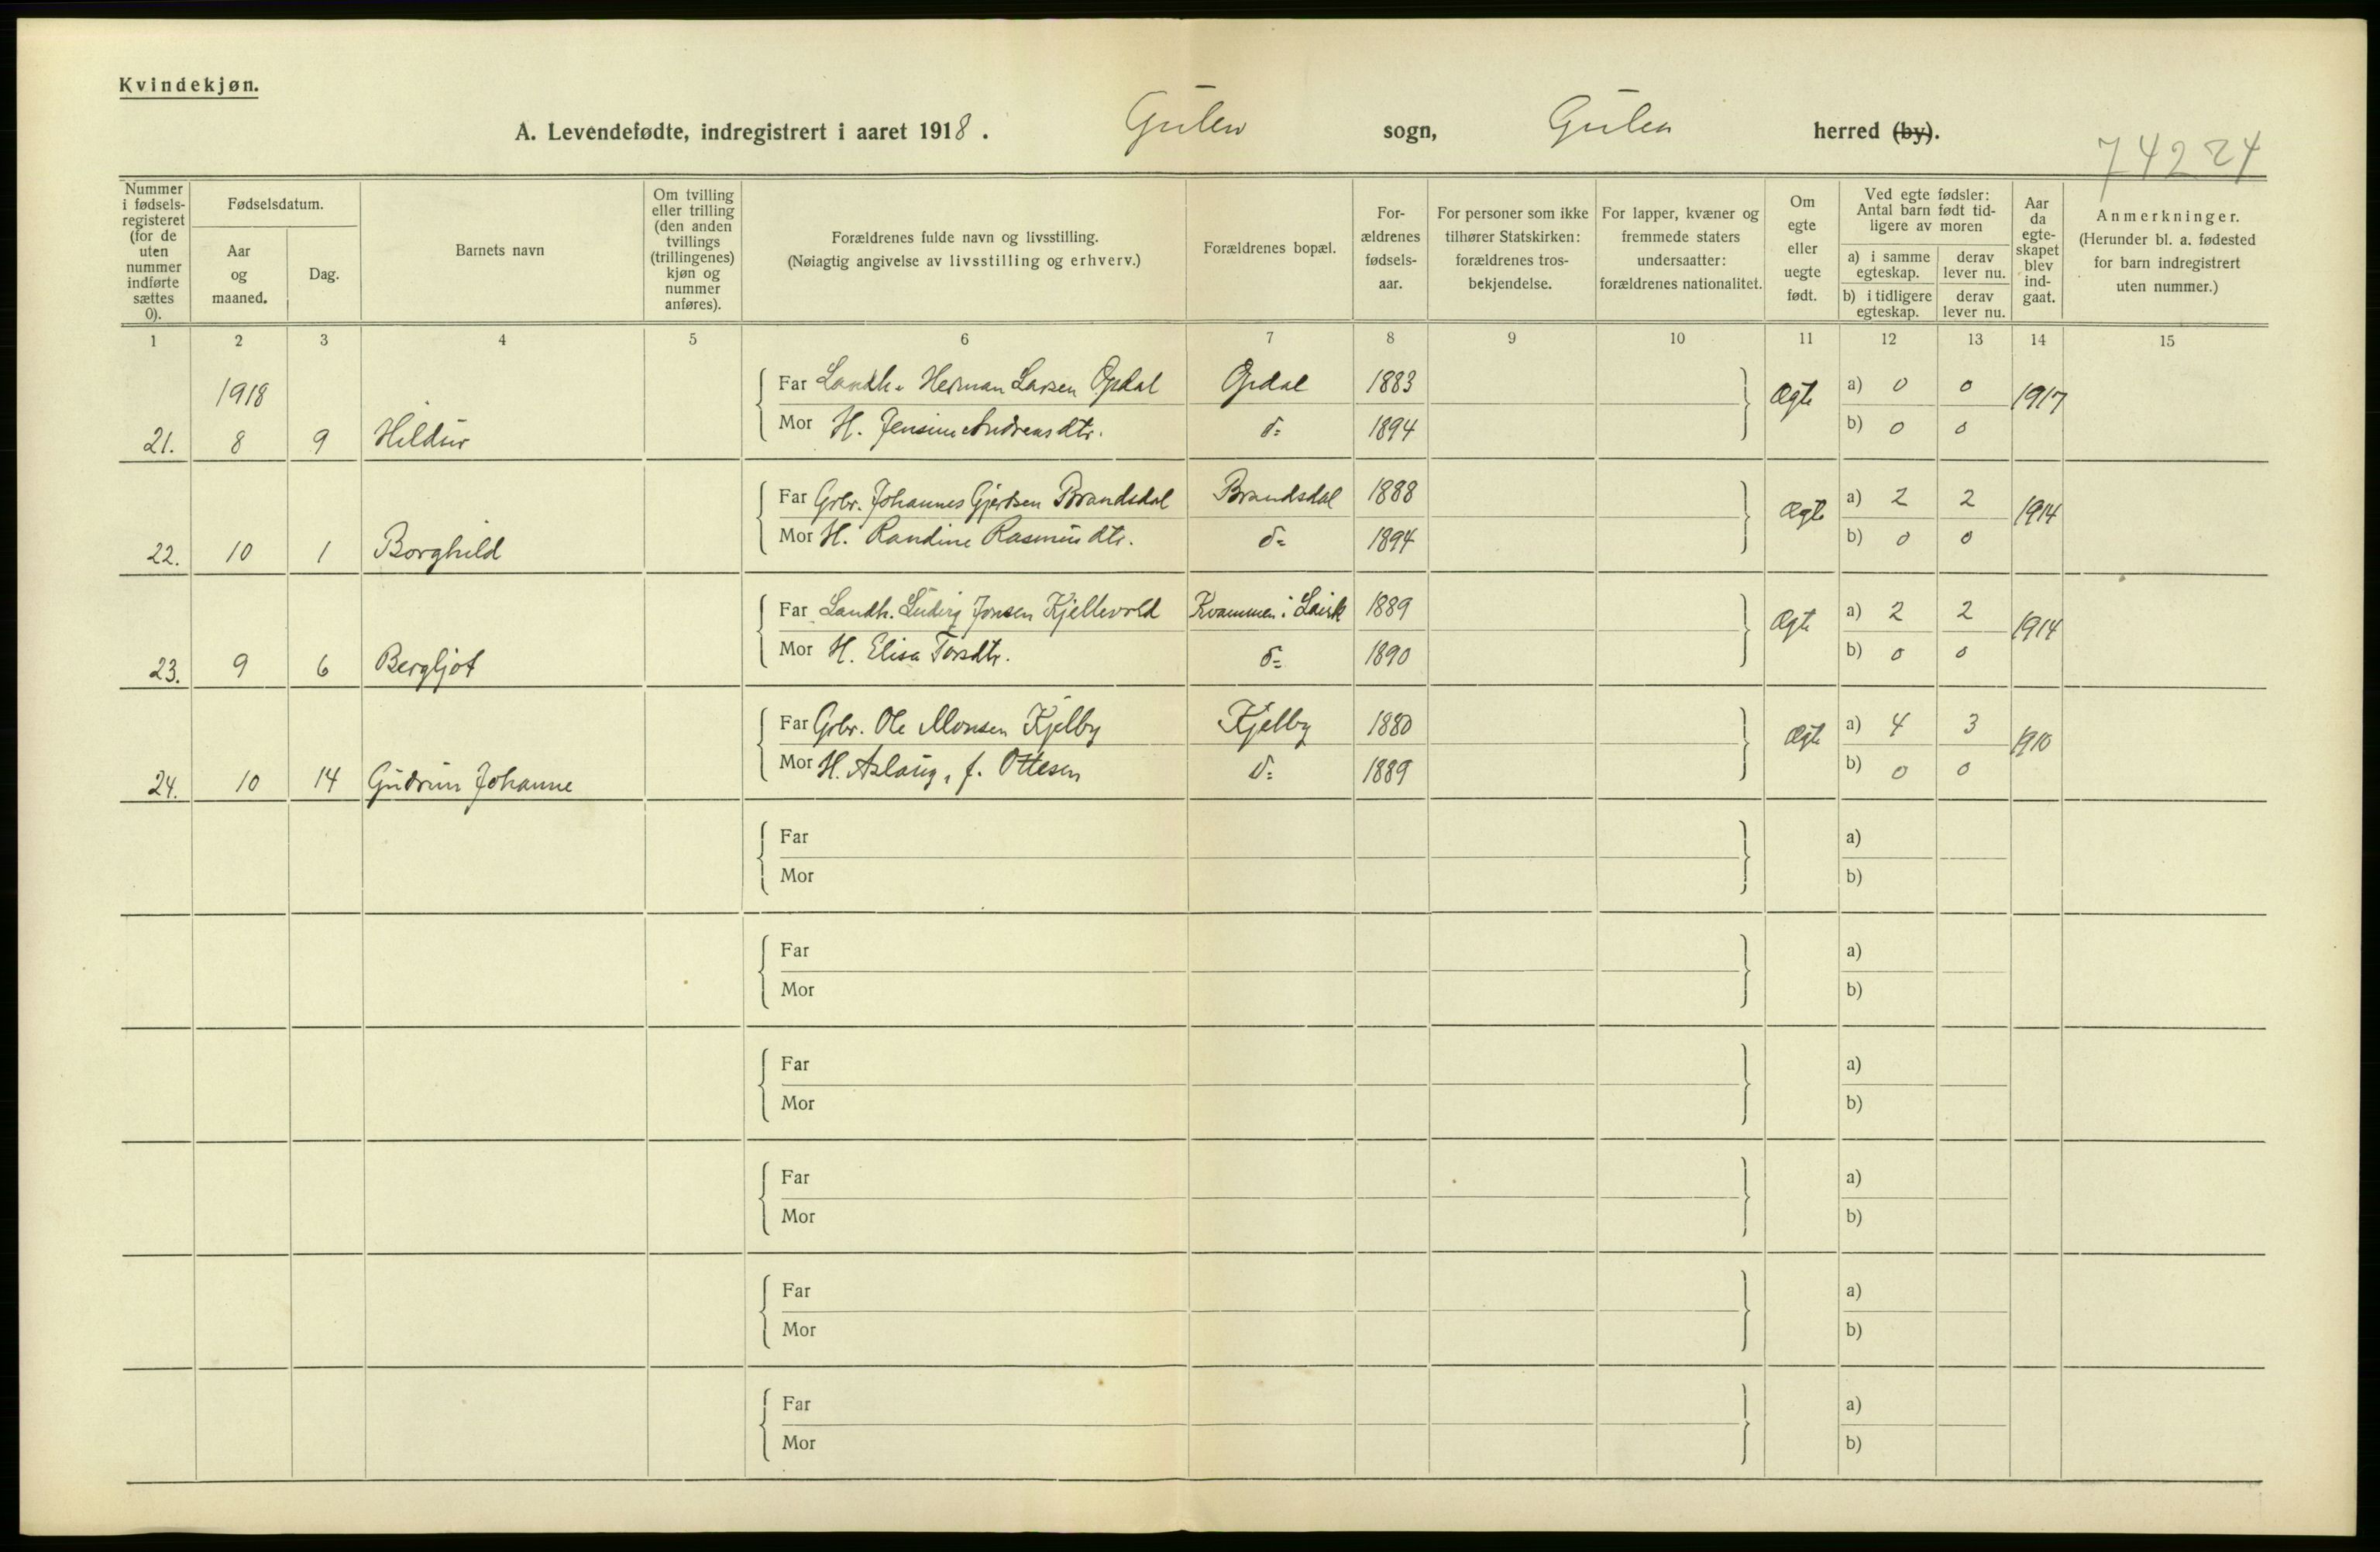 Kvindekjøn.
A. Levendefødte, indregistrert i aaret 1918. Gulen sogn, Gulen herred (by).
74224
Nummer i fødsels-registeret (for de uten nummer indførte sættes 0).
Fødselsdatum.
Aar og maaned.
Dag.
Barnets navn
Om tvilling eller trilling (den anden tvillings (trillingenes) kjøn og nummer anføres).
Forældrenes fulde navn og livsstilling.
(Nøiagtig angivelse av livsstilling og erhverv.)
Forældrenes bopæl.
For-ældrenes fødsels-aar.
For personer som ikke tilhører Statskirken: forældrenes tros-bekjendelse.
For lapper, kvæner og fremmede staters undersaatter: forældrenes nationalitet.
Om egte eller uegte født.
Ved egte fødsler: Antal barn født tid-ligere av moren
a) i samme egteskap.
derav lever nu.
b) i tidligere egteskap.
derav lever nu.
Aar da egte-skapet blev ind-gaat.
Anmerkninger.
(Herunder bl. a. fødested for barn indregistrert uten nummer.)
1 2 3 4 5 6 7 8 9 10 11 12 13 14 15
1918
Far Landh. Herman Larsen Opdal Opdal 1883 Ægte a) 0 0 1917
21. 8 9 Hildur Mor H. Jensine Andreasdtr. d= 1894 b) 0 0
Far Grbr. Johannes Gjertsen Brandsdal Brandsdal 1888 Ægte a) 2 2 1914
22. 10 1 Borghild Mor H. Randine Rasmusdtr. d= 1894 b) 0 0
Far Landh. Ludvig Jonsen Kjellevold Kvammen i Lavik 1889 Ægte a) 2 2 1914
23. 9 6 Bergljot Mor H. Elisa Torsdtr. d= 1890 b) 0 0
Far Grbr. Ole Monsen Kjelby Kjelby 1880 Ægte a) 4 3 1910
24. 10 14 Gudrun Johanne Mor H. Aslaug, f. Ottesen d= 1889 b) 0 0
Far a)
Mor b)
Far a)
Mor b)
Far a)
Mor b)
Far a)
Mor b)
Far a)
Mor b)
Far a)
Mor b)